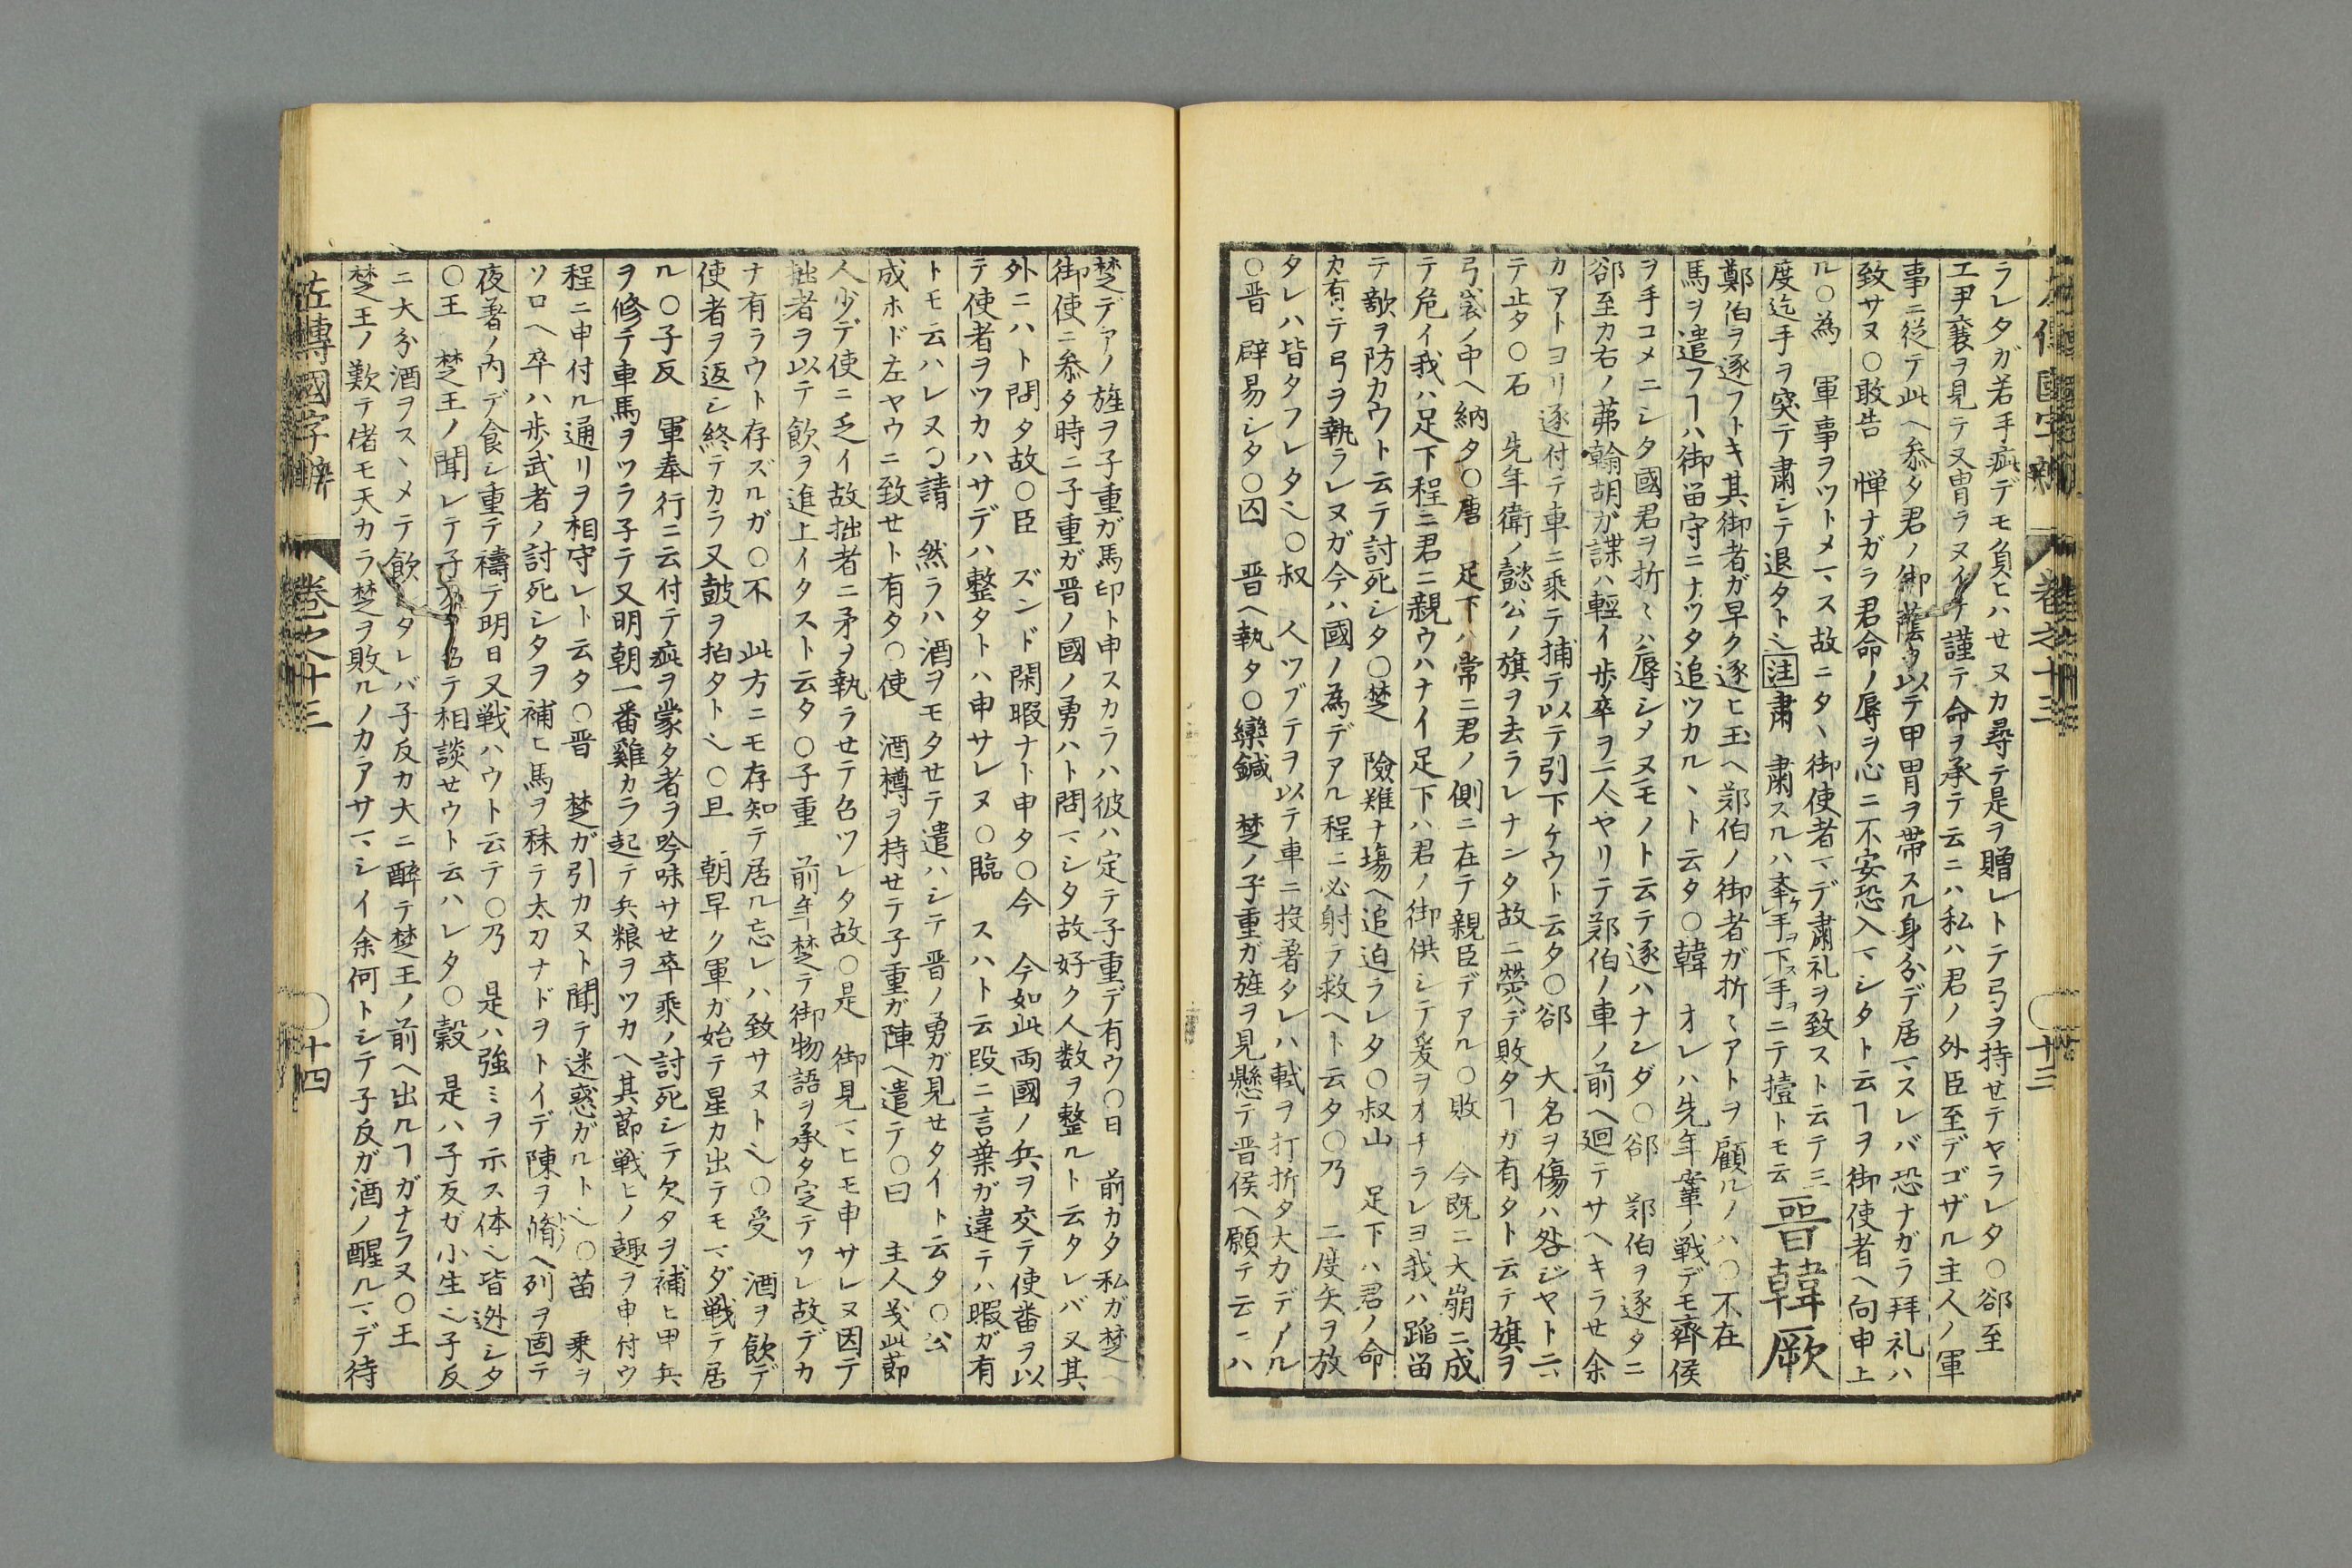 ラレタガ若手疵デモ負ヒハせヌカ尋テ是ヲ贈レトテ弓ヲ持せテヤラレタ○郤至
工尹襄ヲ見テ又冑ラヌイテ謹テ命ヲ承テ云ニハ私ハ君ノ外臣至デゴザル主人ノ軍
事ニ従テ此ヘ参タ君ノ御蔭ヲ以テ甲冑ヲ帯スル身分デ居マスレバ恐ナガラ拜礼ハ
致サヌ○敢告 惮ナガラ君命ノ辱ヲ心ニ不安恐入マシタト云ヿヲ御使者ヘ向申上
ル○為 軍事ヲツトメマス故ニタヽ御使者マデ肅礼ヲ致スト云テ三
度迄手ヲ突テ肅シテ退タト也注肅 肅スルハ手ヲ下手ヲニテ撎トモ云 晉韓厥
鄭伯ヲ逐フトキ其御者ガ早ク逐ヒ玉ヘ鄭伯ノ御者ガ折々アトヲ顧ルノハ○不在
馬ヲ遣フヿハ御畄守ニナツタ追ツカルヽト云タ○韓 オレハ先年鞌ノ戦デモ齊侯
ヲ手コメニシタ國君ヲ折々ハ辱シメヌモノト云テ逐ハナンダ○郤 鄭伯ヲ逐タニ
郤至カ右ノ茀翰胡ガ諜ハ輕イ歩卒ヲ一人ヤリテ鄭伯ノ車ノ前ヘ廻テサヘキラせ余
カアトヨリ逐付テ車ニ乘テ捕テ以テ引下ケウト云タ○郤 大名ヲ傷ハ咎ジヤト云
テ止タ○石 先年衛ノ懿公ノ旗ヲ去ラレナンタ故ニ熒デ敗タヿガ有タト云テ旗ヲ
弓袋ノ中ヘ納タ○唐 足下ハ常ニ君ノ側ニ在テ親臣デアル○敗 今既ニ大崩ニ成
テ危イ我ハ足下程ニ君ニ親ウハナイ足下ハ君ノ御供シテ爰ヲオチラレヨ我ハ蹈畄
テ敵ヲ防カウト云テ討死シタ○楚 險難ナ塲ヘ追迫ラレタ○叔山 足下ハ君ノ命
カ有テ弓ヲ執ラレヌガ今ハ國ノ為デアル程ニ必射テ救ヘト云タ○乃 二度矢ヲ放
タレハ皆タフレタ也○叔 人ツブテヲ以テ車ニ投著タレハ軾ヲ打折タ大力デアル
○晋 辟易シタ○囚 晋ヘ執タ○欒鍼 楚ノ子重ガ旌ヲ見懸テ晋侯ヘ願テ云ニハ
左傳國字辨 卷之十三 十三
楚デアノ旌ヲ子重ガ馬印ト申スカラハ彼ハ定テ子重デ有ウ○日 前カタ私ガ楚ヘ
御使ニ参タ時ニ子重ガ晋ノ國ノ勇ハト問マシタ故好ク人数ヲ整ルト云タレバ又其
外ニハト問タ故○臣 ズンド閑暇ナト申タ○今 今如此両國ノ兵ヲ交テ使番ヲ以
テ使者ヲツカハサデハ整タトハ申サレヌ○臨 スハト云段ニ言葉ガ違テハ暇ガ有
トモ云ハレヌ○請 然ラハ酒ヲモタせテ遣ハシテ晋ノ勇ガ見せタイト云タ○公
成ホド左ヤウニ致せト有タ○使 酒樽ヲ持せテ子重ガ陣ヘ遣テ○曰 主人義此節
人少デ使ニ乏イ故拙者ニ矛ヲ執ラせテ召ツレタ故○是 御見マヒモ申サレヌ因テ
拙者ヲ以テ飲ヲ進上イタスト云タ○子重 前年楚デ御物語ヲ承タ定テツレ故デカ
ナ有ラウト存ズルガ○不 此方ニモ存知テ居ル忘レハ致サヌト也○受 酒ヲ飲デ
使者ヲ返シ終テカラ又鼓ヲ拍タト也○旦 朝早ク軍ガ始テ星カ出テモマダ戦テ居
ル○子反 軍奉行ニ云付テ疵ヲ蒙タ者ヲ吟味サせ卒乘ノ討死シテ欠タヲ補ヒ甲兵
ヲ修テ車馬ヲツラ子テ又明朝一番雞カラ起テ兵粮ヲツカヘ其節戦ヒノ趣ヲ申付ウ
程ニ申付ル通リヲ相守レト云タ○晋 楚ガ引カヌト聞テ迷惑ガルト也○苗 乗ヲ
ソロヘ卒ハ歩武者ノ討死シタヲ補ヒ馬ヲ秣テ太刀ナドヲトイデ陳ヲ脩ヘ列ヲ固テ
夜著ノ内デ食シ重テ禱テ明日又戦ハウト云テ○乃 是ハ強ミヲ示ス体也皆迯シタ
○王 楚王ノ聞レテ子反ヲ召テ相談せウト云ハレタ○穀 是ハ子反ガ小生也子反
ニ大分酒ヲスヽメテ飲シタレバ子反カ大ニ醉テ楚王ノ前ヘ出ルヿガナラヌ○王
楚王ノ歎テ偖モ天カラ楚ヲ敗ルノカアサマシイ余何トシテ子反ガ酒ノ醒ルマデ待
左傳國字辨 卷之十三 十四